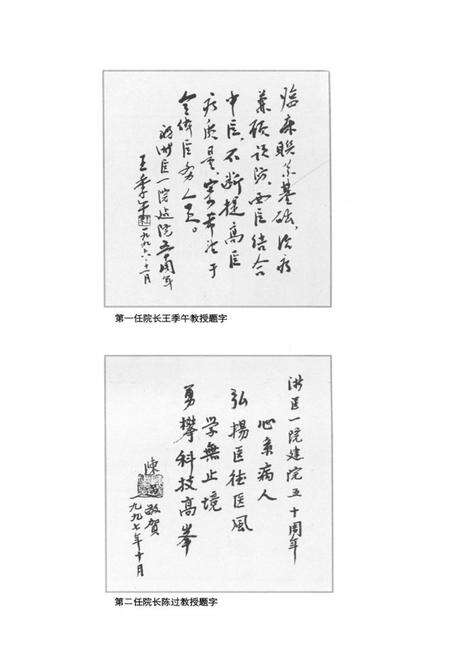 临床联系基础，治病
兼顾预防，西医结合
中医，不断提高医
疗质量，
全体医务人员。
祝浙医一院建院五十周年
王季午
一九九六·十一月
第一任院长王季午教授题字
浙医一院建院五十周年
心系病人
弘揚医德医風
学無止境
勇攀科技高峯
陳过 敬賀
一九九七年十月
第二任院长陈过教授题字